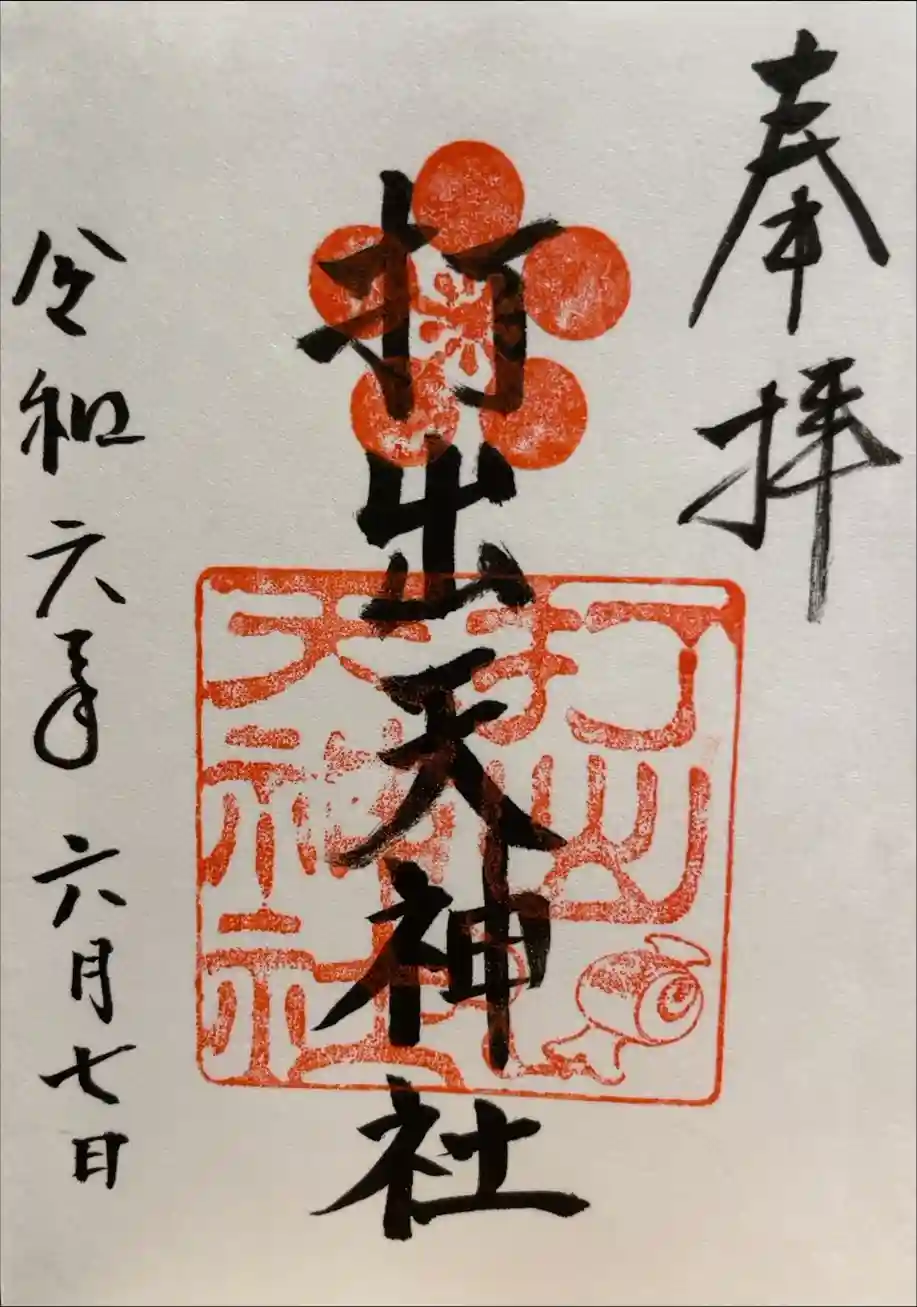 奉拝
打出天神社
打出
天神社
令和六年六月七日